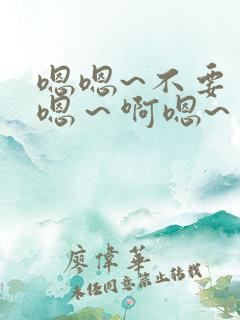 嗯嗯~不要
嗯~啊嗯~
廖偉華
未經同意禁止转载